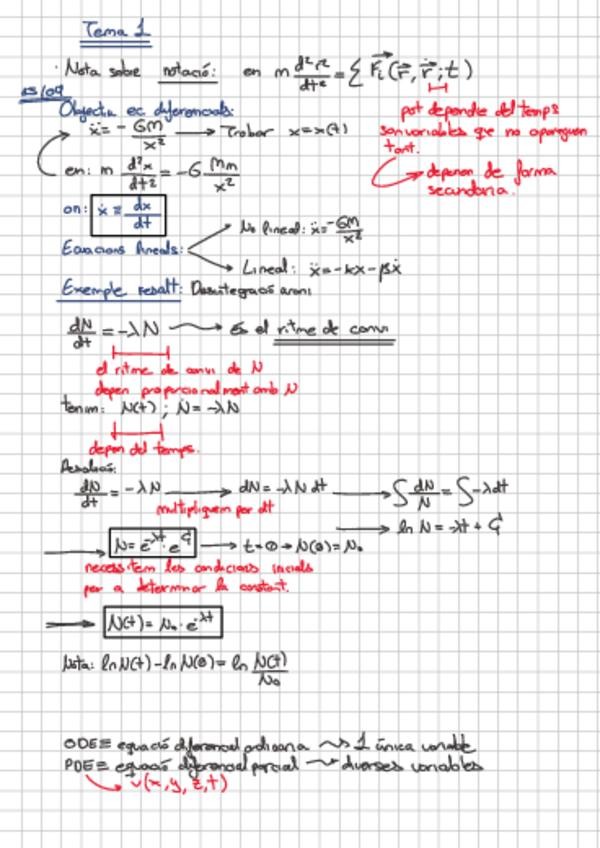 Tema 1
· Nota sobre notació: en m d²r/dt² = Σ Fᵢ(r, ṙ; t)
15/09
Objectiu ec diferencials:
ẍ = - GM/x² → Trobar x=x(t)
pot dependre del temps
son variables que no apareguen
tant.
→ depenen de forma
secundaria.
en: m d²x/dt² = -G Mm/x²
on: ẋ ≡ dx/dt
Equacions lineals:
No lineal: ẍ = -GM/x²
Lineal: ẍ = -kx - βẋ
Exemple resolt: Desintegració
dN/dt = -λN → És el ritme de canvi
el ritme de canvi de N
depen proporcionalment amb N
tenim: N(t) ; Ṅ = -λN
depen del temps.
Resolució:
dN/dt = -λN → dN = -λN dt → ∫ dN/N = ∫ -λdt
multipliquem per dt
→ ln N = -λt + C
→ N = e^-λt · e^C → t=0 → N(0) = N₀
necessitem les condicions inicials
per a determinar la constant.
→ N(t) = N₀ · e^-λt
Nota: ln N(t) - ln N(0) = ln N(t)/N₀
ODE ≡ equació diferencial ordinaria ⇝ 1 única variable
PDE ≡ equació diferencial parcial ⇝ diverses variables
→ v(x, y, z, t)